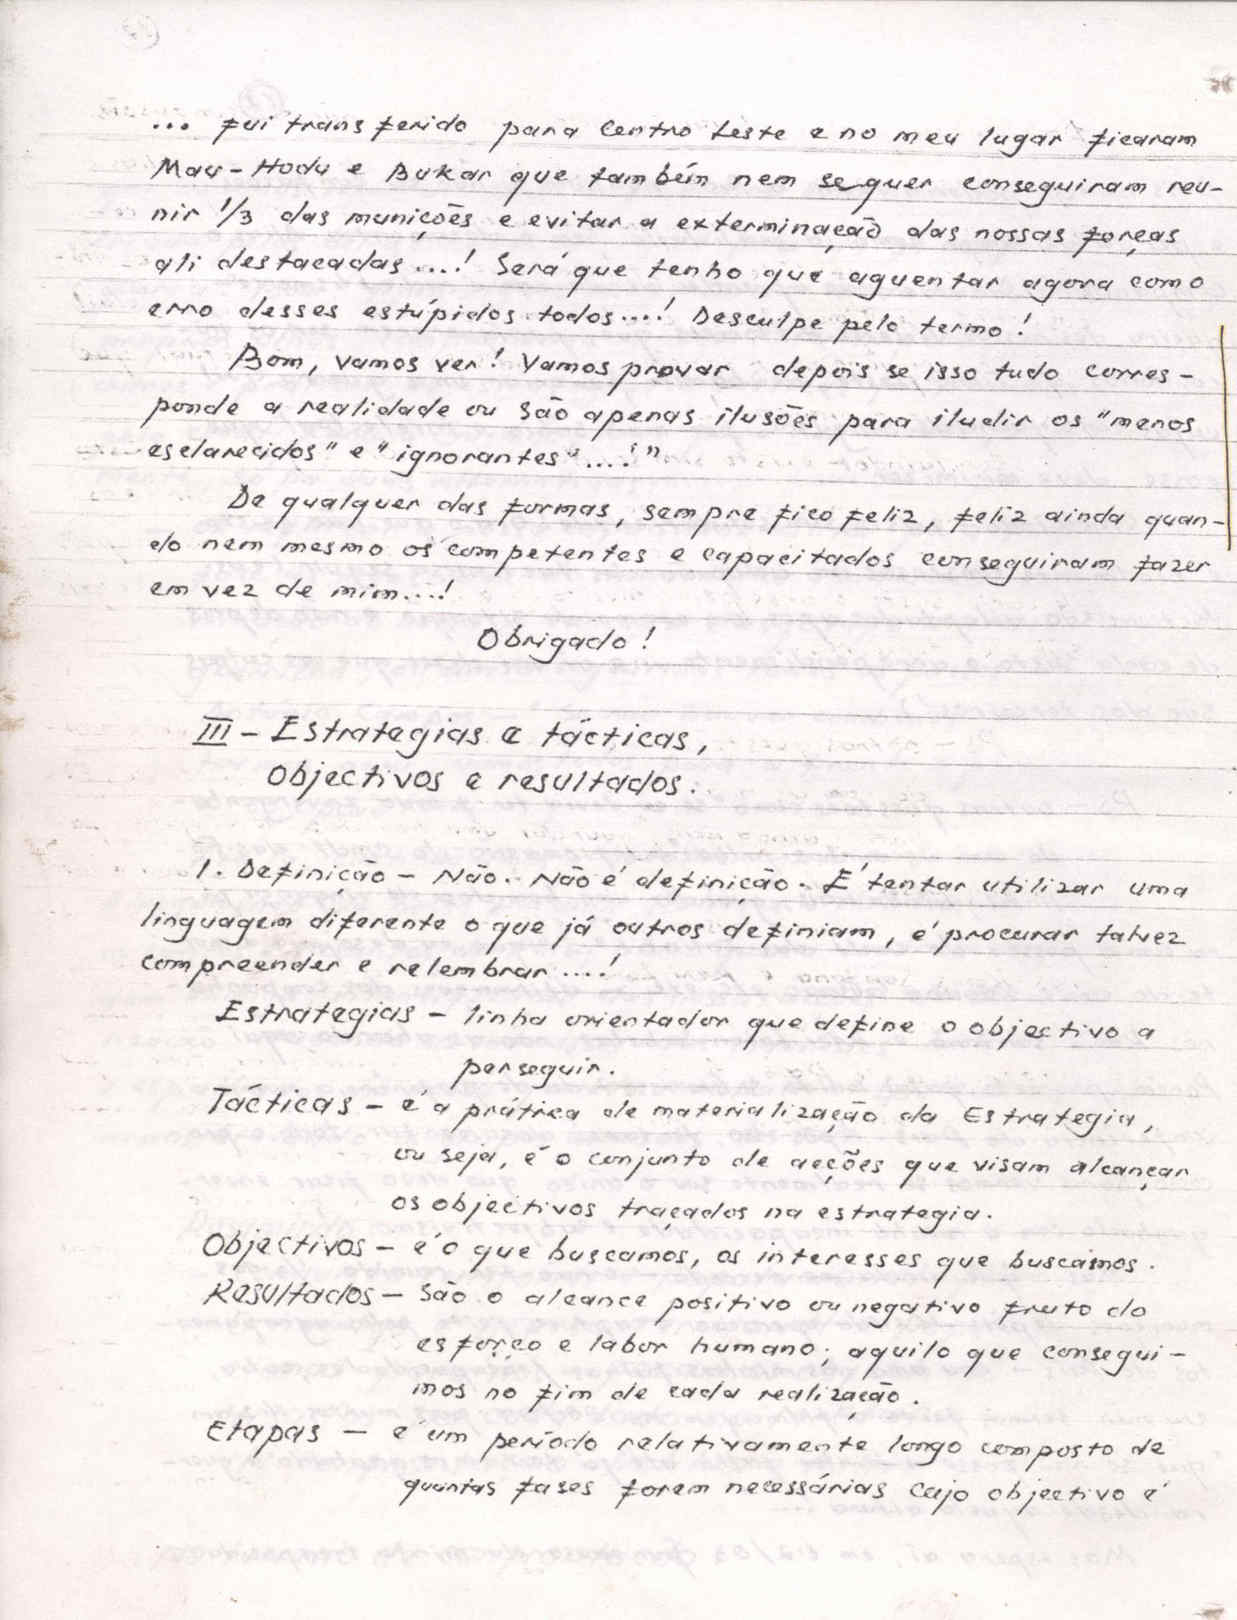 ... fui transferido para Centro Leste e no meu lugar ficaram
Mau-Hodu e Bukar que também nem sequer conseguiram reu-
nir 1/3 das munições e evitar a exterminação das nossas forças
ali destacadas...! Será que tenho que aguentar agora como
erro desses estúpidos todos...! Desculpe pelo termo!
Bom, vamos ver! Vamos provar depois se isso tudo corres-
ponde a realidade ou são apenas ilusões para iludir os "menos
esclarecidos" e "ignorantes"...!"
De qualquer das formas, sempre fico feliz, feliz ainda quan-
do nem mesmo os competentes e capacitados conseguiram fazer
em vez de mim...!
Obrigado!
III - Estrategias e tácticas,
Objectivos e resultados.
1. Definição - Não. Não é definição. É tentar utilizar uma
linguagem diferente o que já outros definiam, é procurar talvez
compreender e relembrar....!
Estrategias - linha orientador que define o objectivo a
perseguir.
Tácticas - é a prática de materialização da Estrategia,
ou seja, é o conjunto de acções que visam alcançar
os objectivos traçados na estrategia.
Objectivos - é o que buscamos, os interesses que buscamos.
Resultados - São o alcance positivo ou negativo fruto do
esforço e labor humano; aquilo que consegui-
mos no fim de cada realização.
Etapas - é um período relativamente longo composto de
quantas fases forem necessárias cujo objectivo é